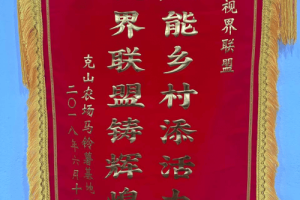 视界联盟
能乡村添活力
界联盟铸辉煌
克山农场马铃薯基地
二〇一八年六月十